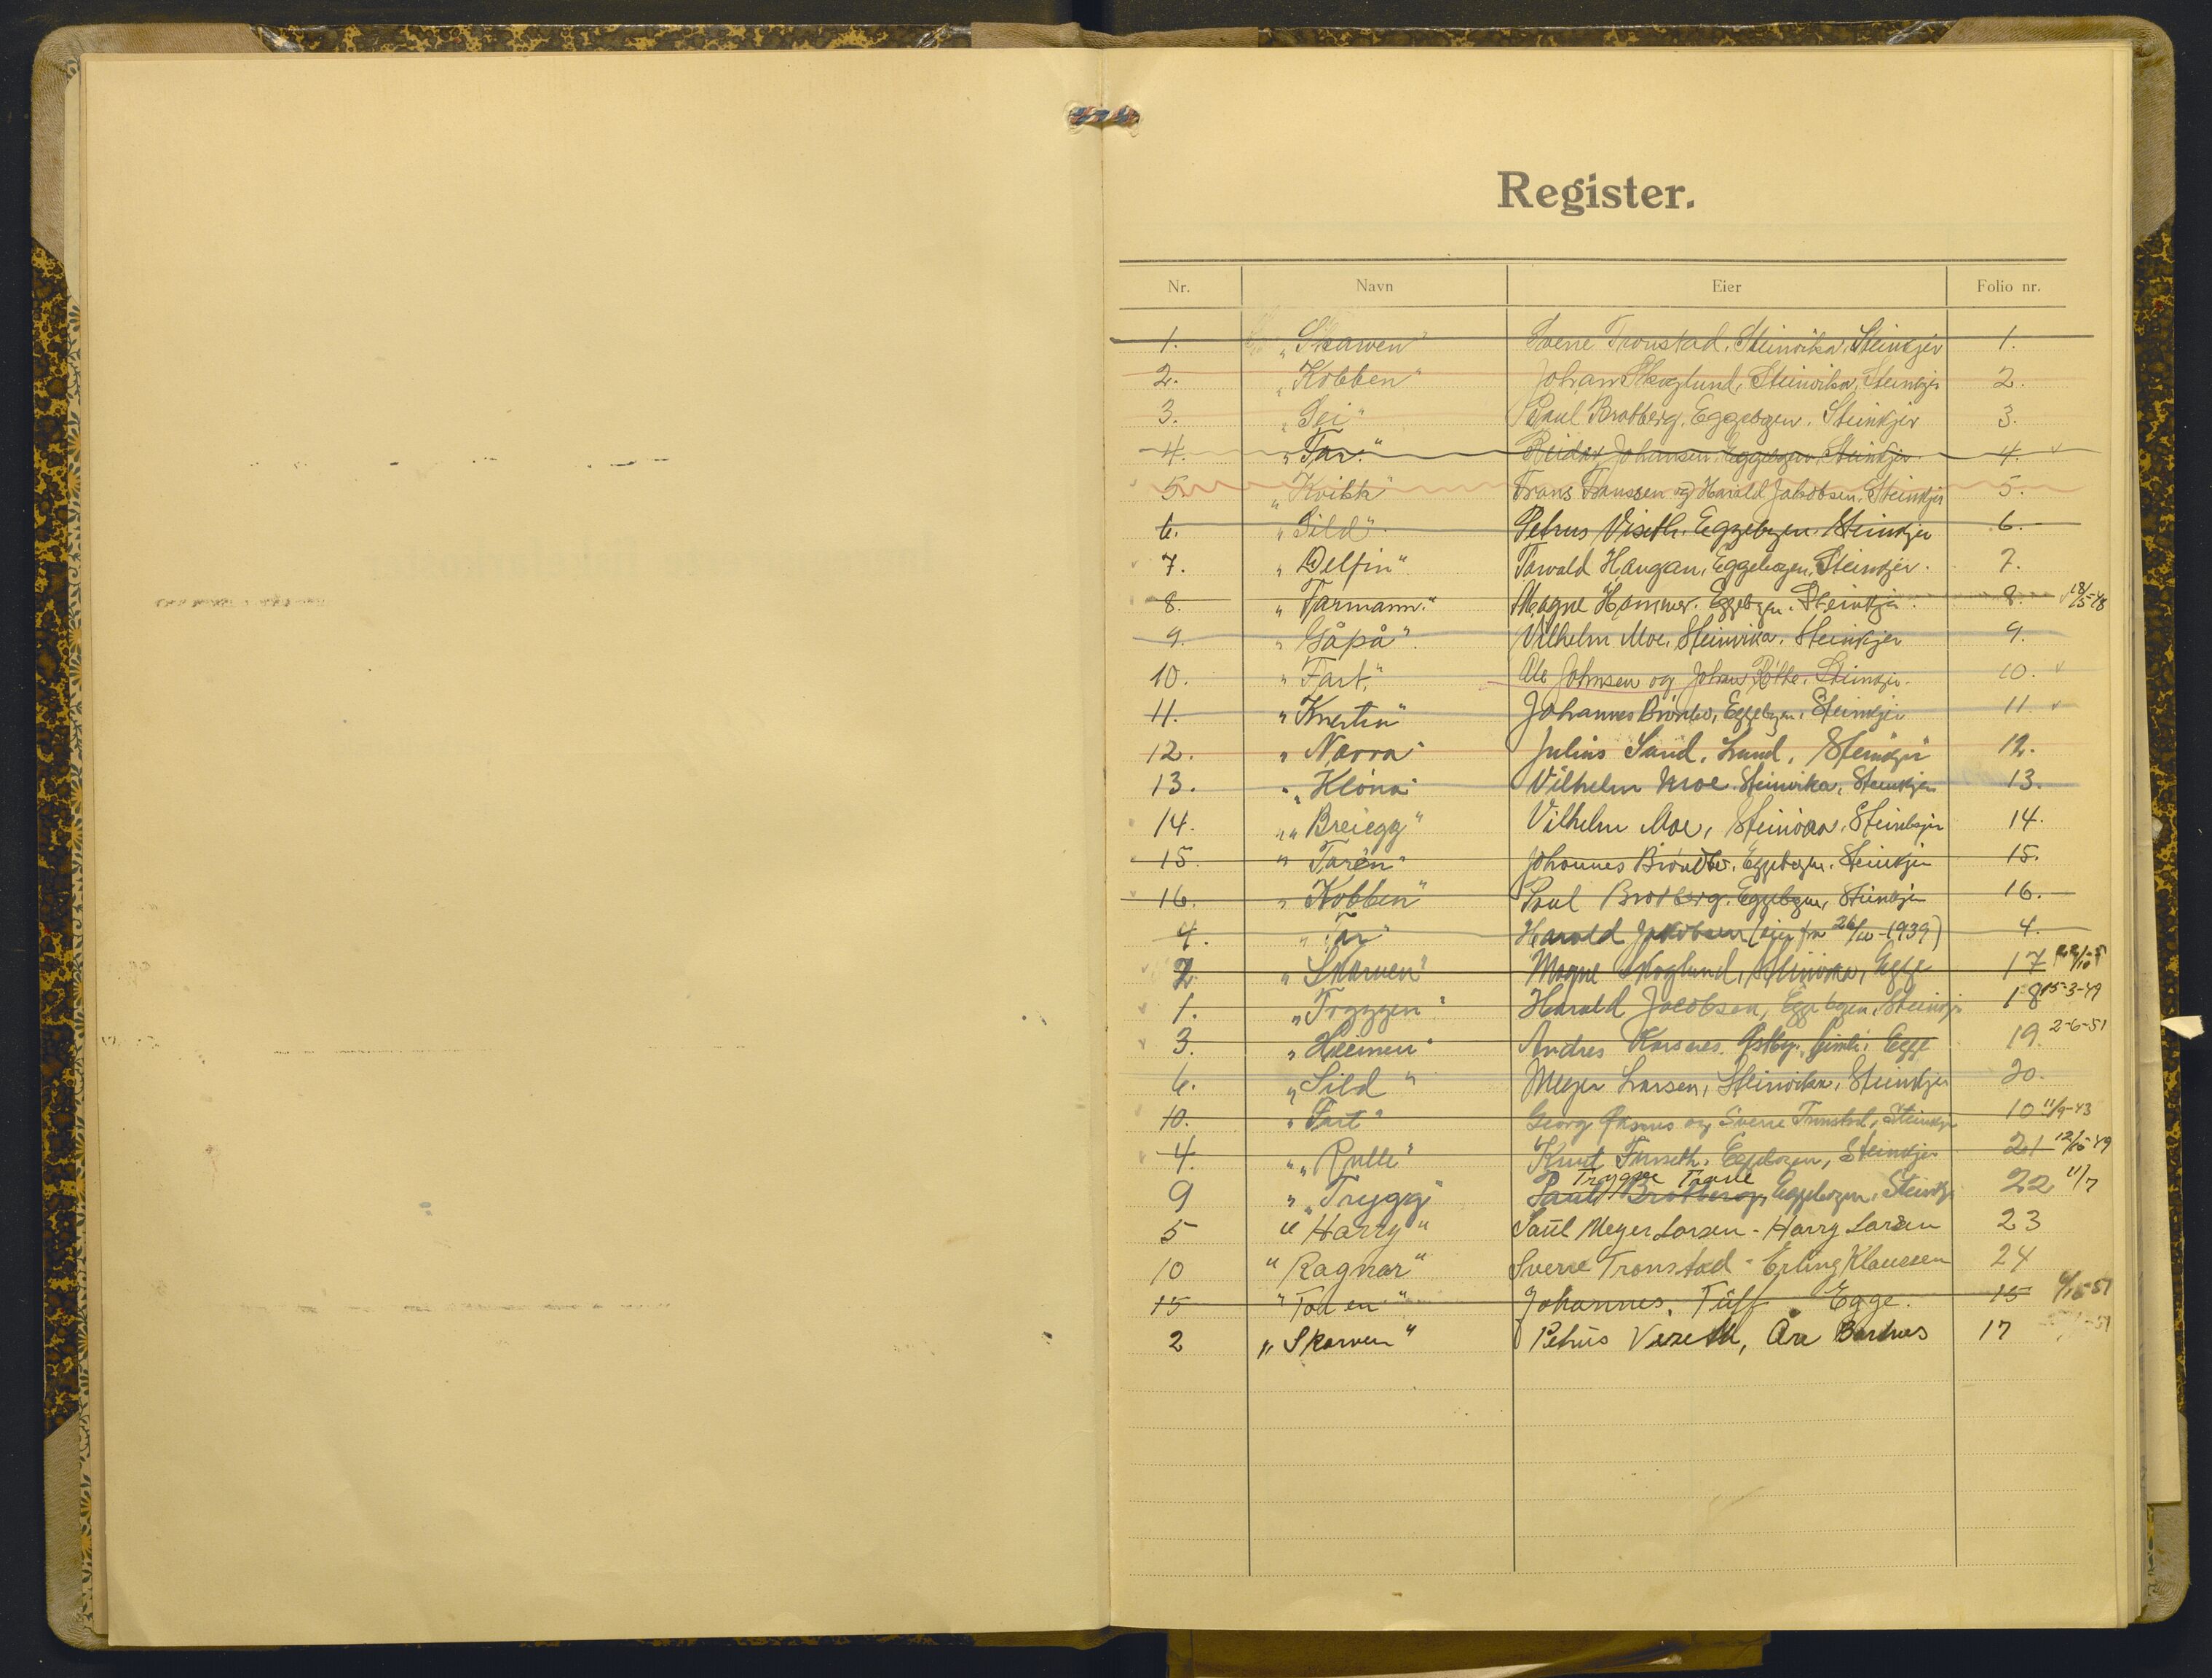 Register.
Nr. Navn Eier Folio nr.
1. "Skarven" Sverre Tronstad, Steinvika, Steinkjer 1.
2. "Kobben" Johan Skoglund, Steinvika, Steinkjer 2.
3. "Sei" Paul Brotberg, Eggebogen, Steinkjer 3.
4. "Tar." Reidar Johansen, Eggebogen, Steinkjer 4. v
5. "Kvikk" Frans Franssen og Harald Jakobsen, Steinkjer 5.
6. "Sild". Petrus Viseth, Eggebogen, Steinkjer 6.
7. "Delfin". Torvald Haugan, Eggebogen, Steinkjer. 7.
8. "Tarmann." Magne Hammer, Eggebogen, Steinkjer. 8. 18/5-48
9. "Gåpå". Vilhelm Moe, Steinvika, Steinkjer 9.
10. "Fart." Ole Johnsen og Johan, Steinkjer. 10. v
11. Johannes, Eggebogen, Steinkjer 11. v
12. "Norra" Julius Sand, Lund, Steinkjer 12.
13. "Klona" Vilhelm Moe, Steinvika, Steinkjer 13.
14. "Breiegg" Vilhelm Moe, Steinvika, Steinkjer 14.
15. "Taren" Johannes, Eggebogen, Steinkjer 15.
16. "Kobben" Paul Brotberg, Eggebogen, Steinkjer 16.
4. "Tar" Harald Jakobsen (eier fra 26/10-1939) 4.
2. "Skarven" Magne Skoglund, Steinvika, Egge 17
1. "Tryggen" Harald Jacobsen, Eggebogen, Steinkjer 18 15-3-49
3. Andres, Egge 19. 2-6-51
6. "Sild" Meyer Larsen, Steinvika, Steinkjer 20.
10. "Fart" Georg og Sverre Tronstad, Steinkjer 10 11/9-43
4. "Rulle" Knut, Eggebogen, Steinkjer 21 12/10-49
Trygve
9 "Trygg" Paul Brotberg, Eggebogen, Steinkjer 22 11/7
5 "Harry" Paul Meyer Larsen - Harry Larsen 23
10 "Ragnar" Sverre Tronstad - Erling Klaussen 24
15 "Taren" Johannes. Egge. 15
2 "Skarven" Petrus Viseth, 17